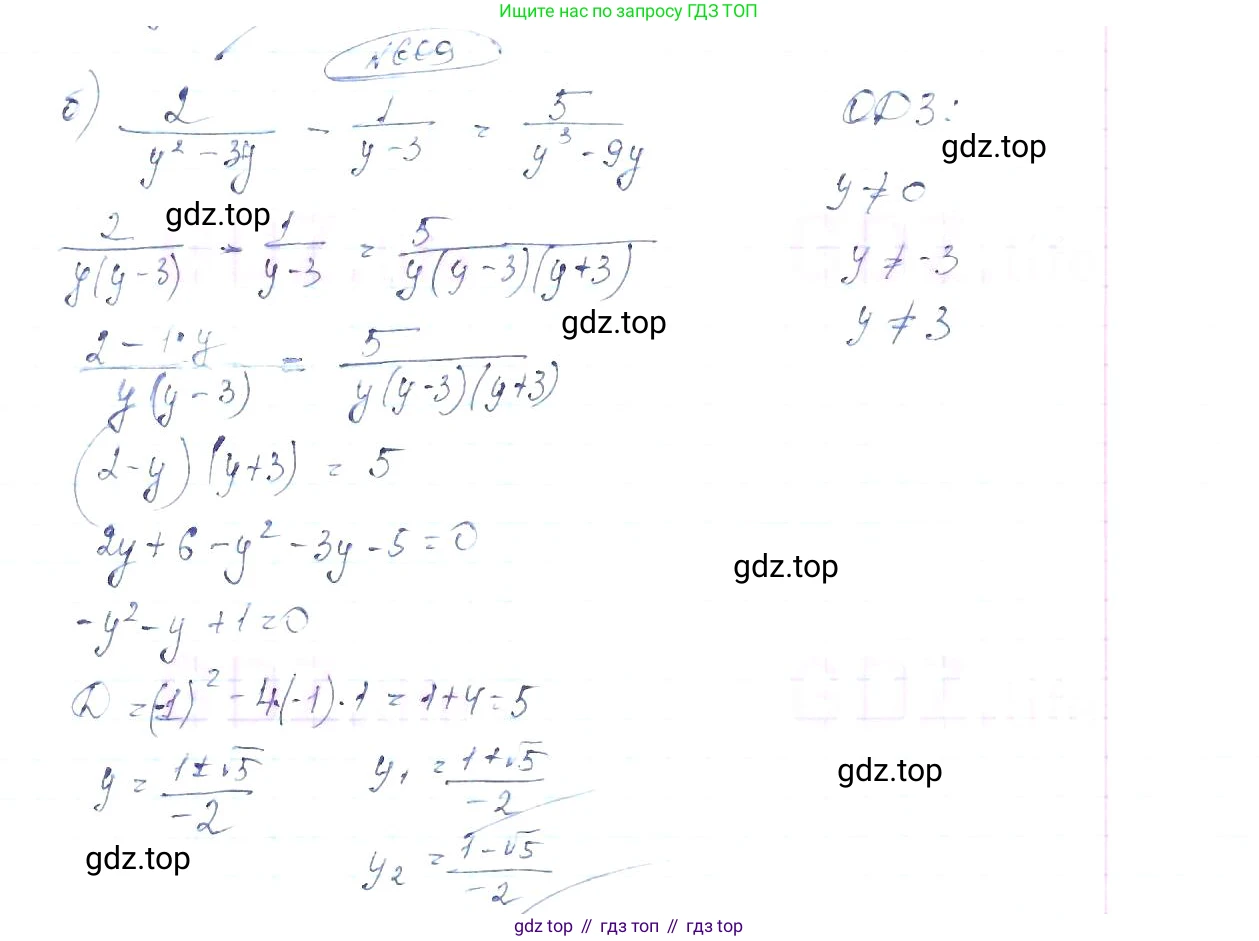 Ищите нас по запросу ГДЗ ТОП
N669
б) 2/(y² - 3y) - 1/(y - 3) = 5/(y³ - 9y)
ОДЗ:
gdz.top
y ≠ 0
gdz.top
2/(y(y - 3)) - 1/(y - 3) = 5/(y(y - 3)(y + 3))
y ≠ -3
gdz.top
y ≠ 3
(2 - 1·y)/(y(y - 3)) = 5/(y(y - 3)(y + 3))
(2 - y)(y + 3) = 5
2y + 6 - y² - 3y - 5 = 0
gdz.top
-y² - y + 1 = 0
D = (-1)² - 4·(-1)·1 = 1 + 4 = 5
y = (1 ± √5)/(-2)
y₁ = (1 + √5)/(-2)
gdz.top
gdz.top
y₂ = (1 - √5)/(-2)
gdz top // гдз топ // гдз top